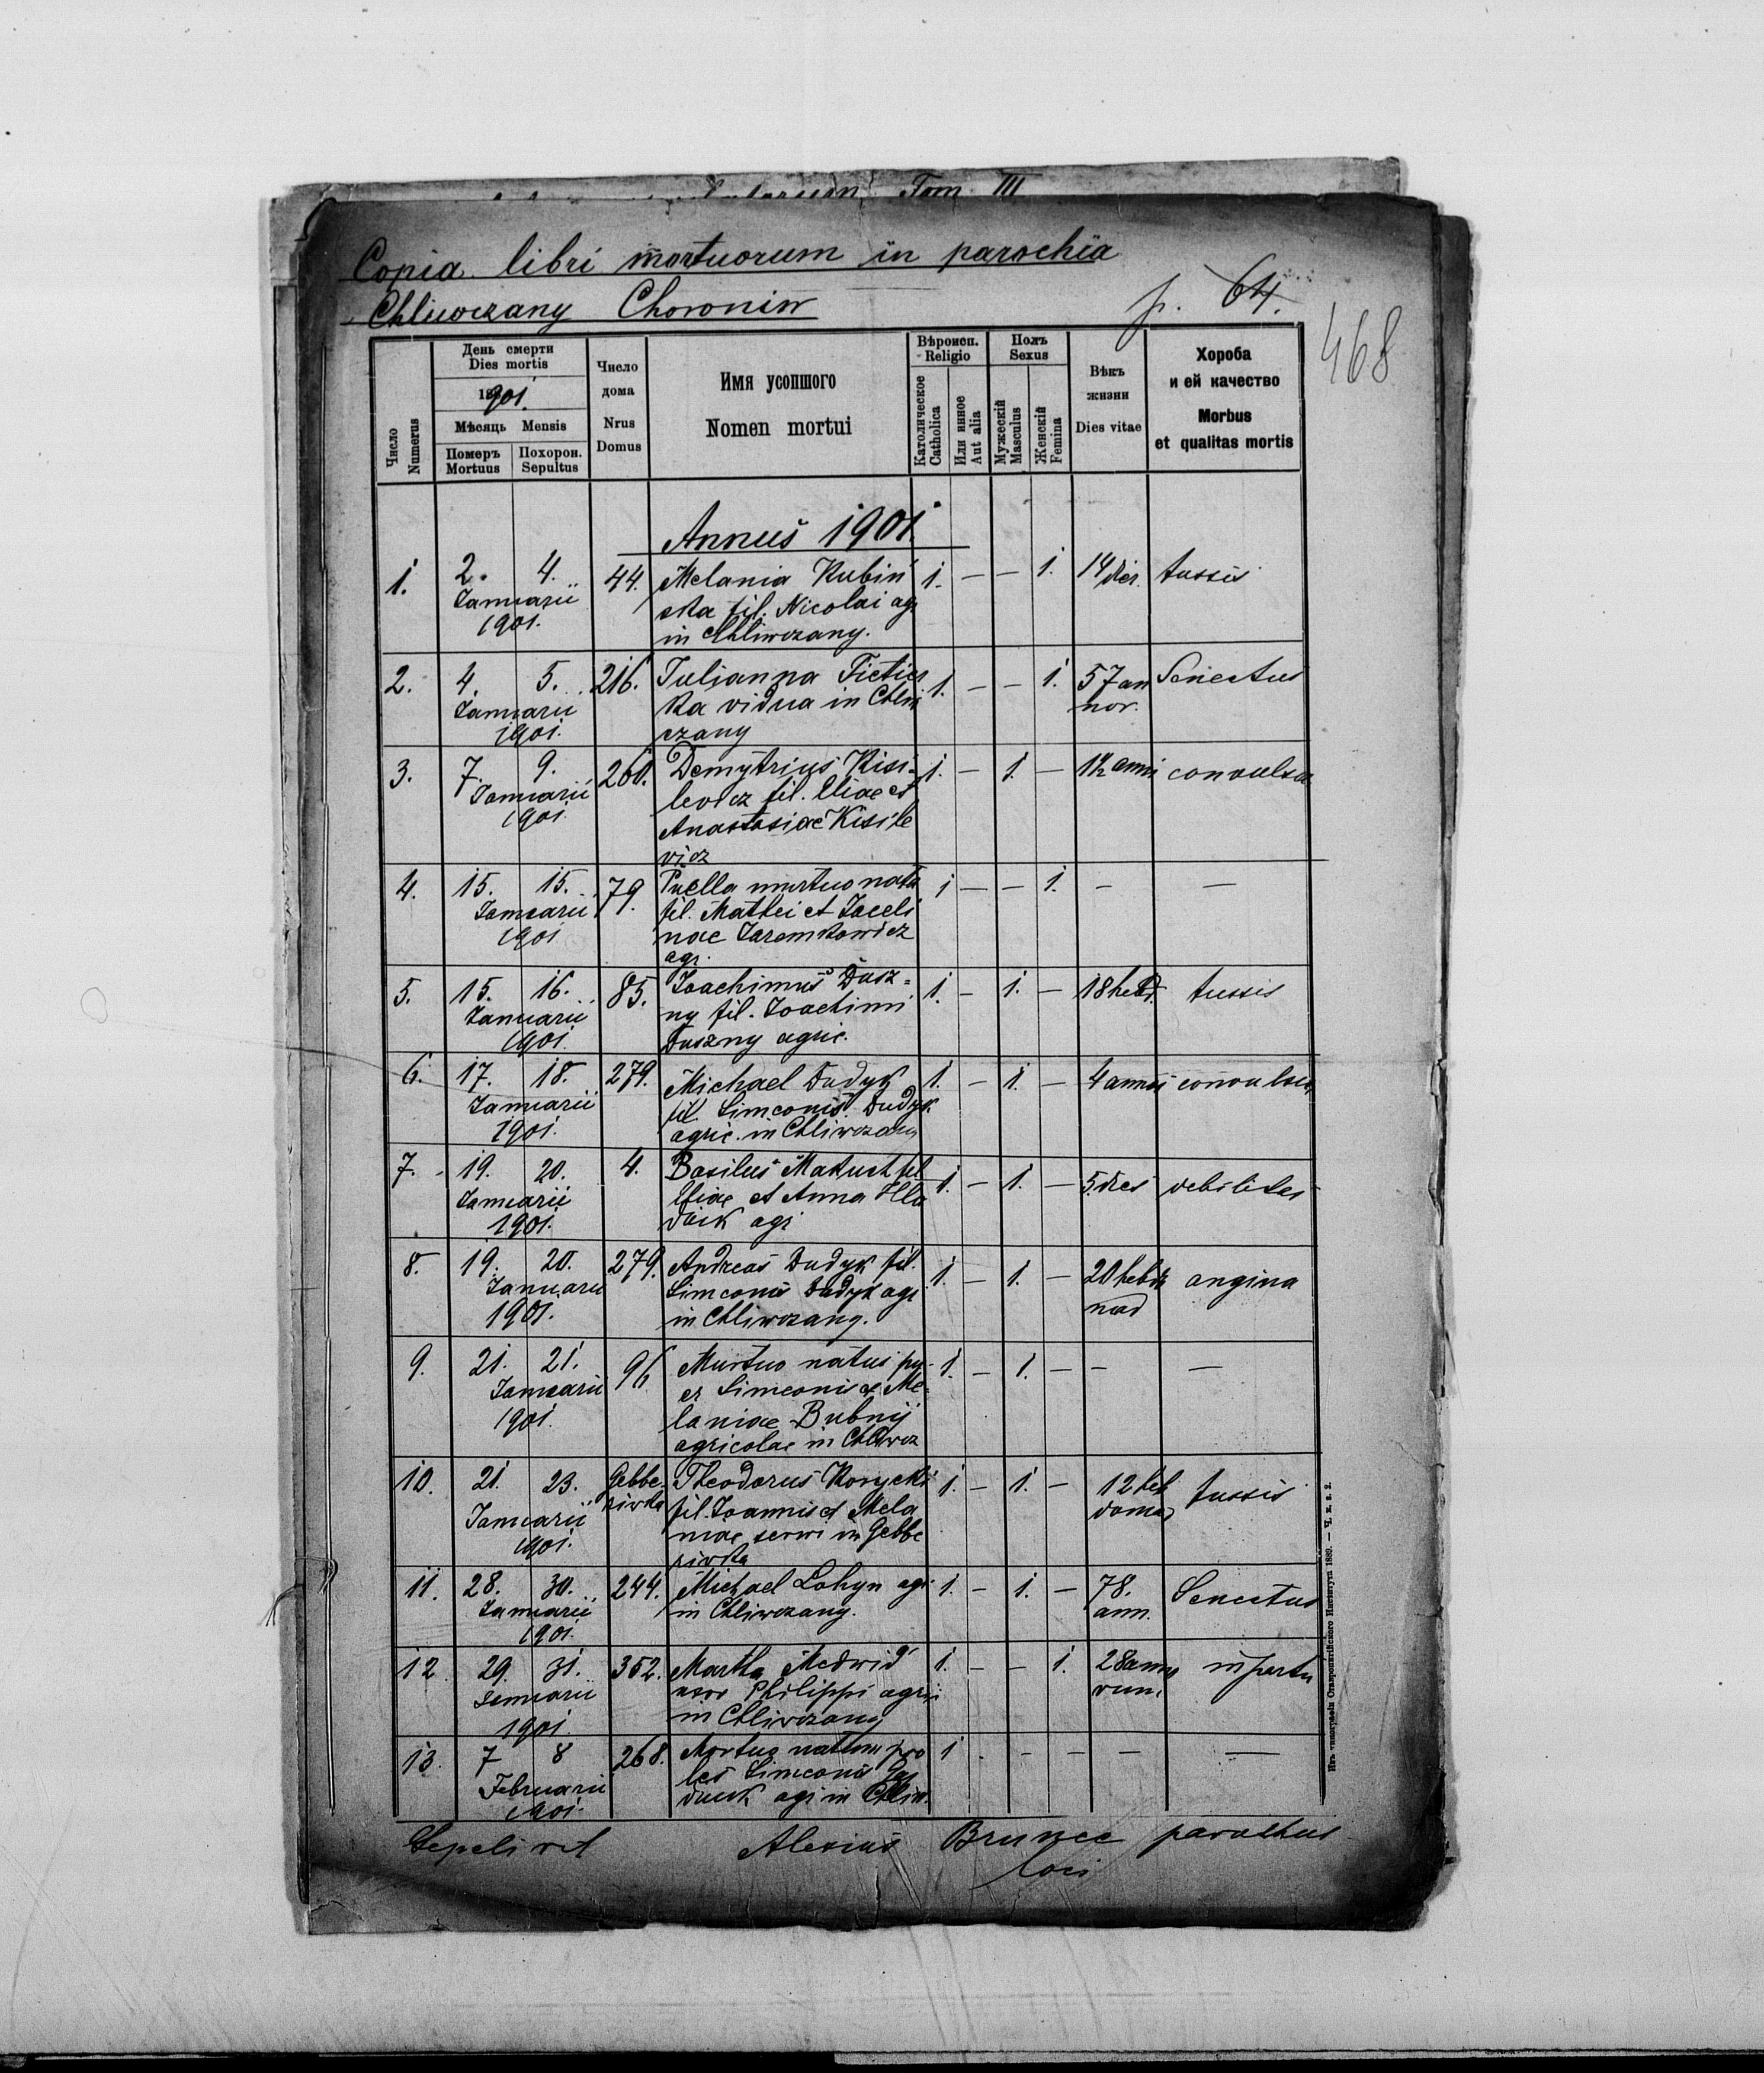 Tom III
Copia libri mortuorum in parochia
Chliwczany Choroniw
p. 64.
468
Число Numerus
День смерти
Dies mortis
1901.
Мѣсяць Mensis
Померъ Mortuus
Похорон. Sepultus
Число дома
Nrus Domus
Имя усопшого
Nomen mortui
Вѣроисп. Religio
Католическое Catholica
Или инное Aut alia
Полъ Sexus
Мужескій Masculus
Женскій Femina
Вѣкъ жизни
Dies vitae
Хороба и ей качество
Morbus et qualitas mortis
Annus 1901.
1. 2. 4. 44. Melania Kubiń 1. — — 1. 14 dier. tussis
Januarii ska fil. Nicolai agr
1901. in Chliwczany.
2. 4. 5. 216. Julianna 1. — — 1. 57 an Senectus
Januarii ka vidua in Chliw nor.
1901. czany
3. 7. 9. 260. Demytrius Kisi- 1. — 1. — 1½ anni convulsa
Januarii lewicz fil. Eliae et
1901. Anastasiae Kisile
vicz
4. 15. 15. 79. Puella mortuo nata 1 — — 1. — —
Januarii fil. Mathei et Jaceli
1901 nae Jaremkowicz
agr.
5. 15. 16. 85. Joachimus Dusz= 1. — 1. — 18 hebd. tussis
Januarii ny fil. Joachimi
1901. Duszny agric.
6. 17. 18. 279. Michael Dudyk 1. — 1. — 4 annis convulsa
Januarii fil. Simeonis Dudyk
1901. agric. in Chliwczany
7. 19. 20. 4. Basilius Makuch fil 1. — 1. — 5 dies debilitas
Januarii Eliae et Anna Hla
1901. dcik agr
8. 19. 20. 279. Andreas Dudyk fil. 1. — 1. — 20 hebdo angina
Januarii Simeonis Dudyk agr mad
1901. in Chliwczany.
9. 21. 21. 96 Murtuo natus pu- 1. — 1. — — —
Januarii er Simeonis et Me=
1901. laniae Bubnij
agricolae in Chliwcz
10. 21. 23. Gebbe- Theodorus Korycki 1. — 1. — 12 heb tussis
Januarii ziwka fil. Joannis et Mela domad
1901. niae servi in Gebbe
ziwka
11. 28. 30. 244. Michael Lohyn agr 1. — 1. — 78. Senectus
Januarii in Chliwczany. ann.
1901.
12. 29. 31. 352. Martha Medwid 1. — — 1. 28 anno in partu
Januarii uxor Philippi agri rum.
1901 in Chliwczany
13. 7 8 268. Mortuo natum pro 1 - - — — —
Februarii les Simeonis
1901. duck agr in Chliw.
Sepelivit Alexius Brunec parochus
loci
Изъ типографіи Ставропигійского Института 1889. — Ч. к. з. 2.